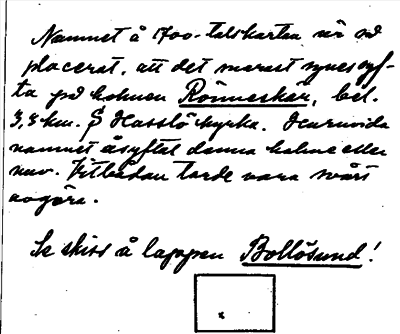 Namnet å 1700-talskartan är så
placerat, att det marast synes syf-
ta på holmen Rönneskär, bel.
3,3 km. S Hasslö kyrka. Huruvida
namnet åsyftat denna holme eller
nuv. Vitlådan torde vara svårt
avgöra.
Se skiss å lappen Bollösund!